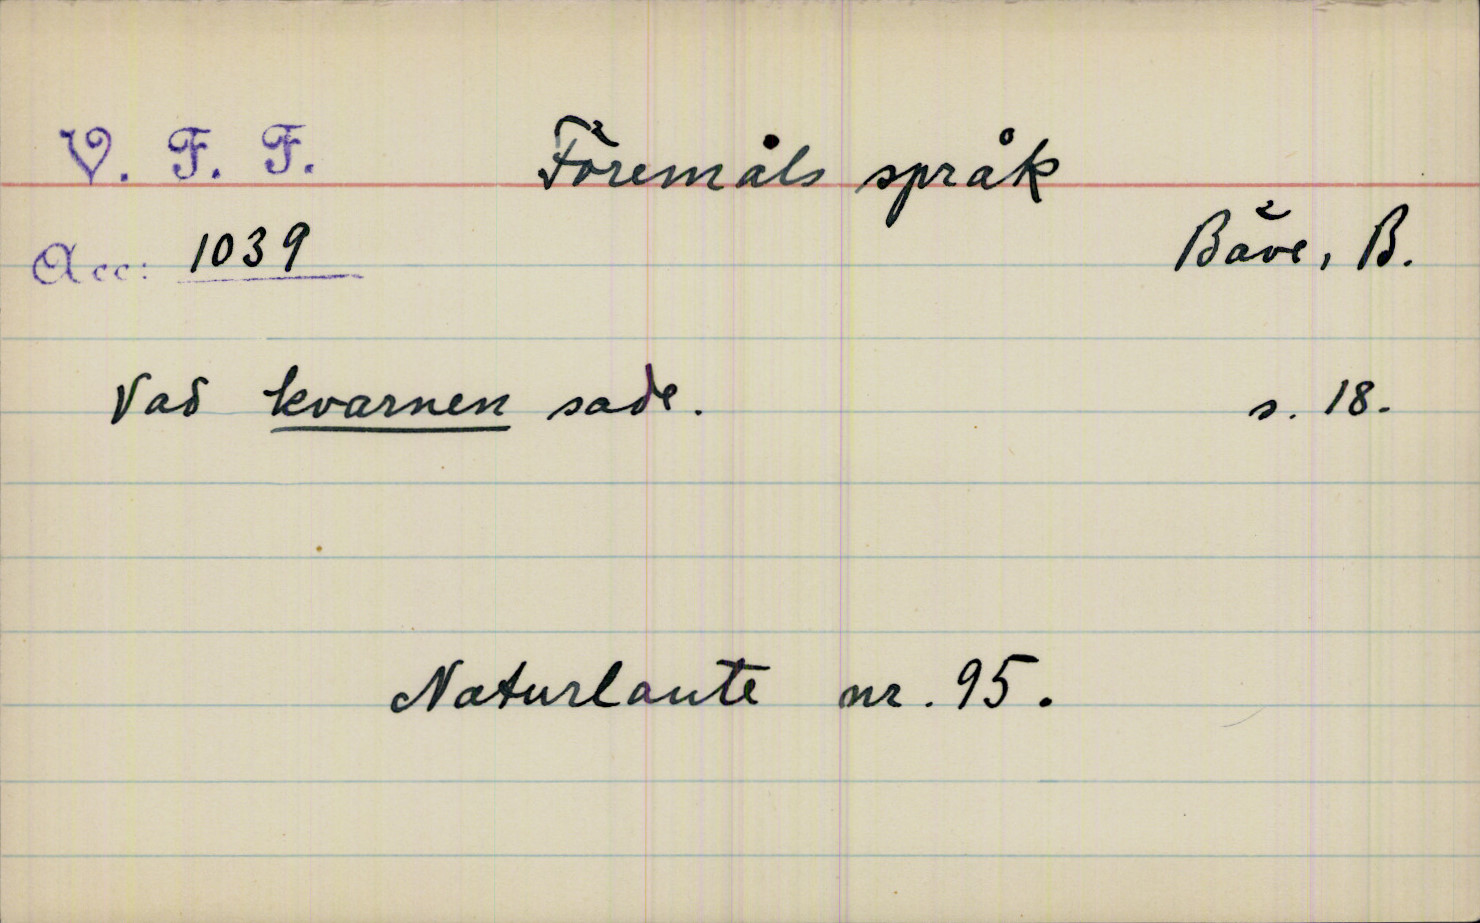 V. F. F. Föremåls språk
Acc: 1039 Bäve, B.
Vad kvarnen sade. s. 18.
Naturlaute nr. 95.